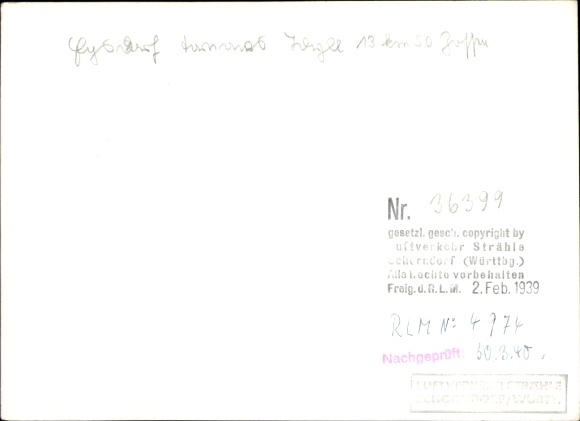 13 km SO
Nr. 36399
gesetzl. gesch. copyright by
Luftverkehr Strähle
Schorndorf (Württbg.)
Alle Rechte vorbehalten
Freig. d. R.L.M. 2. Feb. 1939
RLM No: 4974
Nachgeprüft: 30.3.40.
LUFTVERKEHR STRÄHLE
SCHORNDORF/WÜRTT.